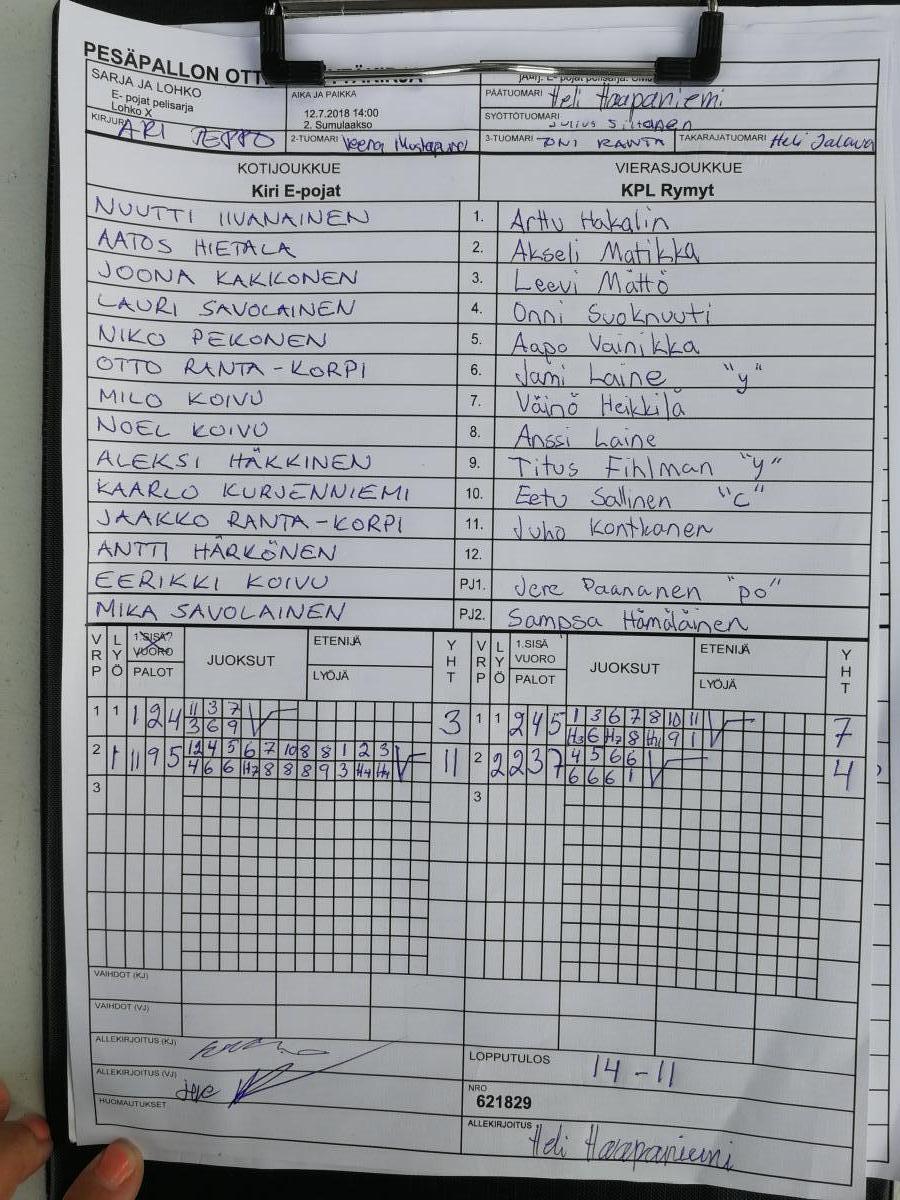 PESÄPALLON
SARJA JA LOHKO
E- pojat pelisarja
Lohko X
AIKA JA PAIKKA
12.7.2018 14:00
2. Sumulaakso
PÄÄTUOMARI Heli Haapaniemi
SYÖTTÖTUOMARI
KIRJURI ARI
2-TUOMARI Veera
3-TUOMARI ONI RANTA
TAKARAJATUOMARI Heli Jalava
KOTIJOUKKUE VIERASJOUKKUE
Kiri E-pojat KPL Rymyt
NUUTTI IIVANAINEN 1. Arttu Hakalin
AATOS HIETALA 2. Akseli Matikka
JOONA KAKKONEN 3. Leevi Mättö
LAURI SAVOLAINEN 4. Onni Suoknuuti
NIKO PEKONEN 5. Aapo Vainikka
OTTO RANTA-KORPI 6. Jami Laine "y"
MILO KOIVU 7. Väinö Heikkilä
NOEL KOIVU 8. Anssi Laine
ALEKSI HÄKKINEN 9. Titus Fihlman "y"
KAARLO KURJENNIEMI 10. Eetu Sallinen "C"
JAAKKO RANTA-KORPI 11. Juho Kontkanen
ANTTI HÄRKÖNEN 12.
EERIKKI KOIVU PJ1. Jere Paananen "po"
MIKA SAVOLAINEN PJ2. Sampsa Hämäläinen
VRP LYÖ 1.SISÄ? VUORO PALOT JUOKSUT ETENIJÄ LYÖJÄ YHT VRP LYÖ 1.SISÄ VUORO PALOT JUOKSUT ETENIJÄ LYÖJÄ YHT
1 1 1 2 4 11 3 7 3 1 1 2 4 5 1 3 6 7 8 10 11 7
3 6 9 H3 6 H7 8 H11 9 1
2 1 11 9 5 12 4 5 6 7 10 8 8 1 2 3 11 2 2 2 3 7 4 5 6 6 4
4 6 6 H7 8 8 8 9 3 H4 H4 6 6 6 1
3 3
VAIHDOT (KJ)
VAIHDOT (VJ)
ALLEKIRJOITUS (KJ)
LOPPUTULOS 14-11
ALLEKIRJOITUS (VJ) Jere
NRO
621829
HUOMAUTUKSET
ALLEKIRJOITUS Heli Haapaniemi